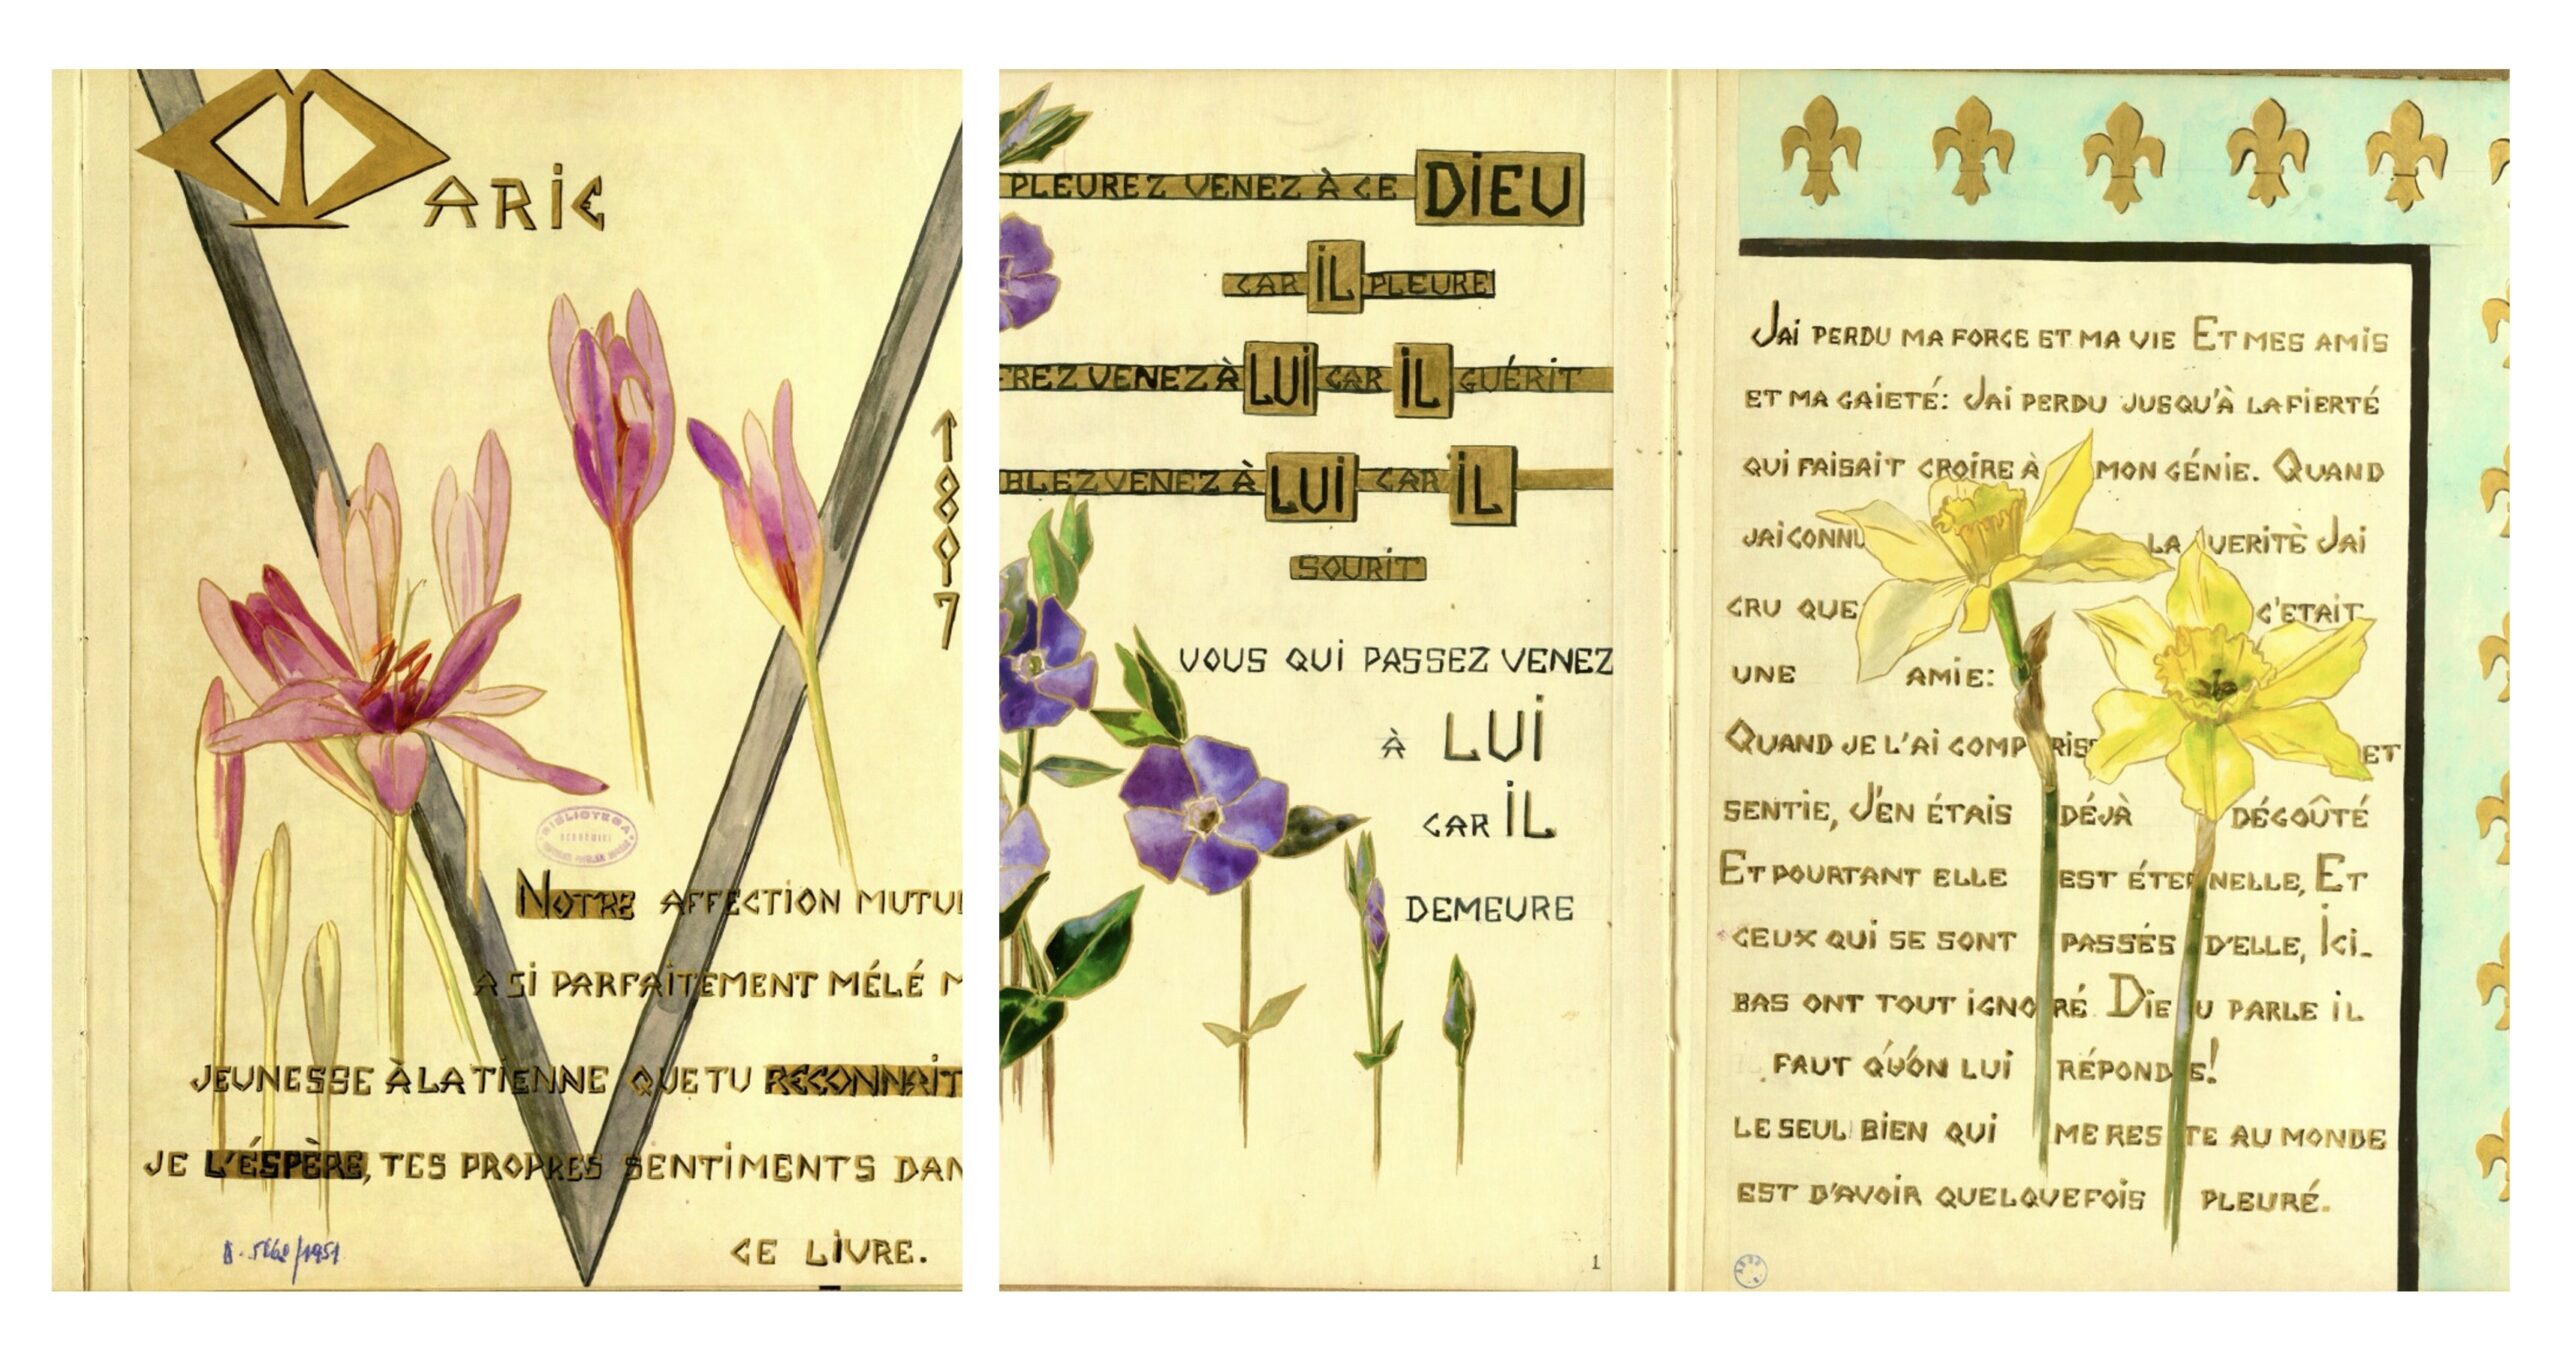 MARIE
1897
NOTRE AFFECTION MUTU
A SI PARFAITEMENT MÉLÉ M
JEUNESSE À LA TIENNE QUE TU RECONNAIT
JE L'ÉSPÈRE, TES PROPRES SENTIMENTS DAN
CE LIVRE.
PLEUREZ VENEZ À CE DIEU
CAR IL PLEURE
FREZ VENEZ À LUI CAR IL GUÉRIT
BLEZ VENEZ À LUI CAR IL
SOURIT
VOUS QUI PASSEZ VENEZ
À LUI
CAR IL
DEMEURE
1
JAI PERDU MA FORCE ET MA VIE ET MES AMIS
ET MA GAIETÉ: JAI PERDU JUSQU'À LA FIERTÉ
QUI FAISAIT CROIRE À MON GÉNIE. QUAND
JAI CONNU LA VERITÈ JAI
CRU QUE C'ETAIT
UNE AMIE:
QUAND JE L'AI COMPRISE ET
SENTIE, J'EN ÉTAIS DÉJÀ DÉGOÛTÉ
ET POURTANT ELLE EST ÉTERNELLE, ET
CEUX QUI SE SONT PASSÉS D'ELLE, ICI-
BAS ONT TOUT IGNORÉ DIEU PARLE IL
FAUT QU'ON LUI RÉPONDE!
LE SEUL BIEN QUI ME RESTE AU MONDE
EST D'AVOIR QUELQUEFOIS PLEURÉ.